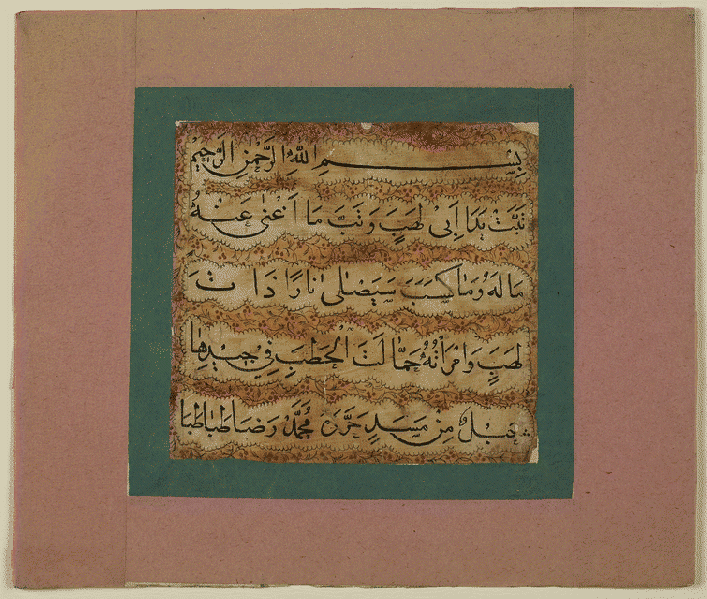 بِسْمِ اللّٰهِ الرَّحْمٰنِ الرَّحِيْمِ
تَبَّتْ يَدَا اَبِىْ لَهَبٍ وَتَبَّ مَا اَغْنٰى عَنْهُ
مَالُهُ وَمَا كَسَبَ سَيَصْلٰى نَارًا ذَاتَ
لَهَبٍ وَامْرَاَتُهُ حَمَّالَتَ الْحَطَبِ فِىْ جِيْدِهَا
حَبْلٌ مِنْ مَسَدٍ حَرَّرَهُ مُحَمَّدْ رضا طباطبا